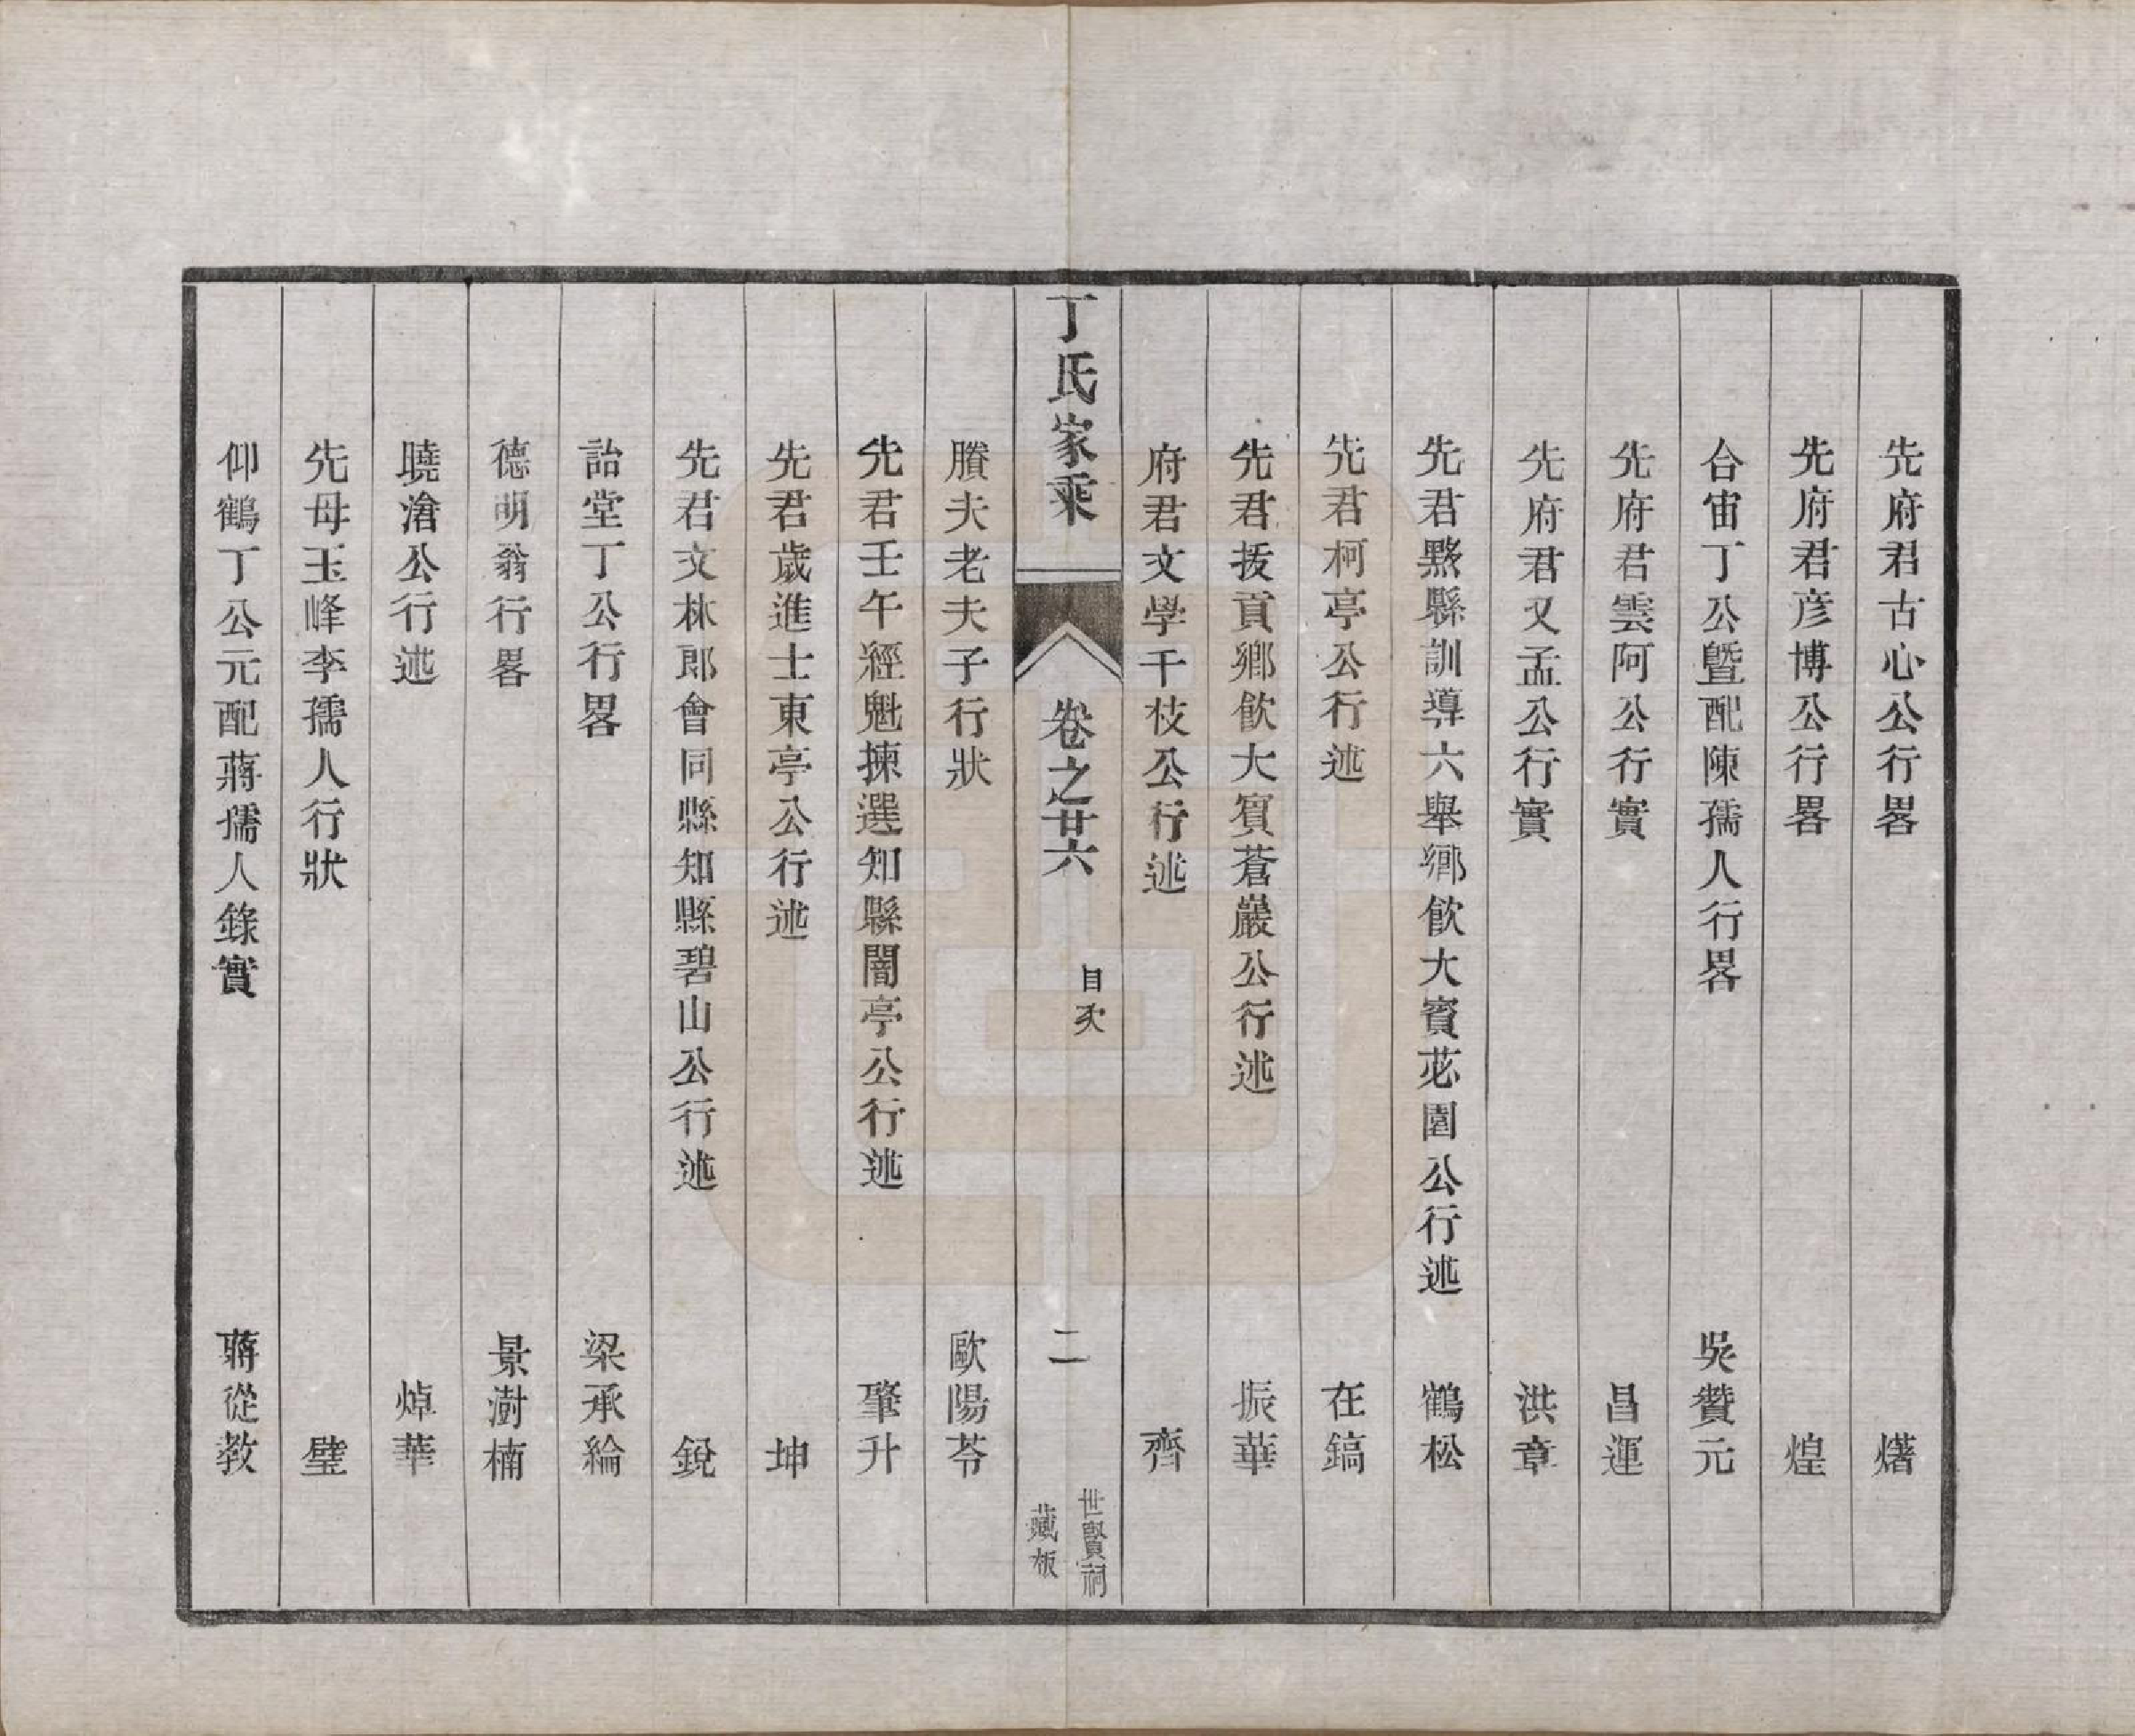 先府君古心公行畧 㸙
先府君彦博公行畧 煌
合宙丁公曁配陳孺人行畧 吳贊元
先府君雲阿公行實 昌運
先府君又孟公行實 洪章
先君黟縣訓導六舉鄉飮大賓苾園公行述 鶴松
先君柯亭公行述 在鎬
先君拔貢鄉飮大賓蒼巖公行述 振華
府君文學千枝公行述 齊
丁氏家乘 卷之廿六 目次 二 世賢祠藏板
賸夫老夫子行狀 歐陽苓
先君壬午經魁揀選知縣闇亭公行述 肇升
先君歲進士東亭公行述 坤
先君文林郎會同縣知縣碧山公行述 銳
詒堂丁公行畧 梁承綸
德明翁行畧 景澍楠
曉滄公行述 焯華
先母玉峰李孺人行狀 璧
仰鶴丁公元配蔣孺人錄實 蔣從教